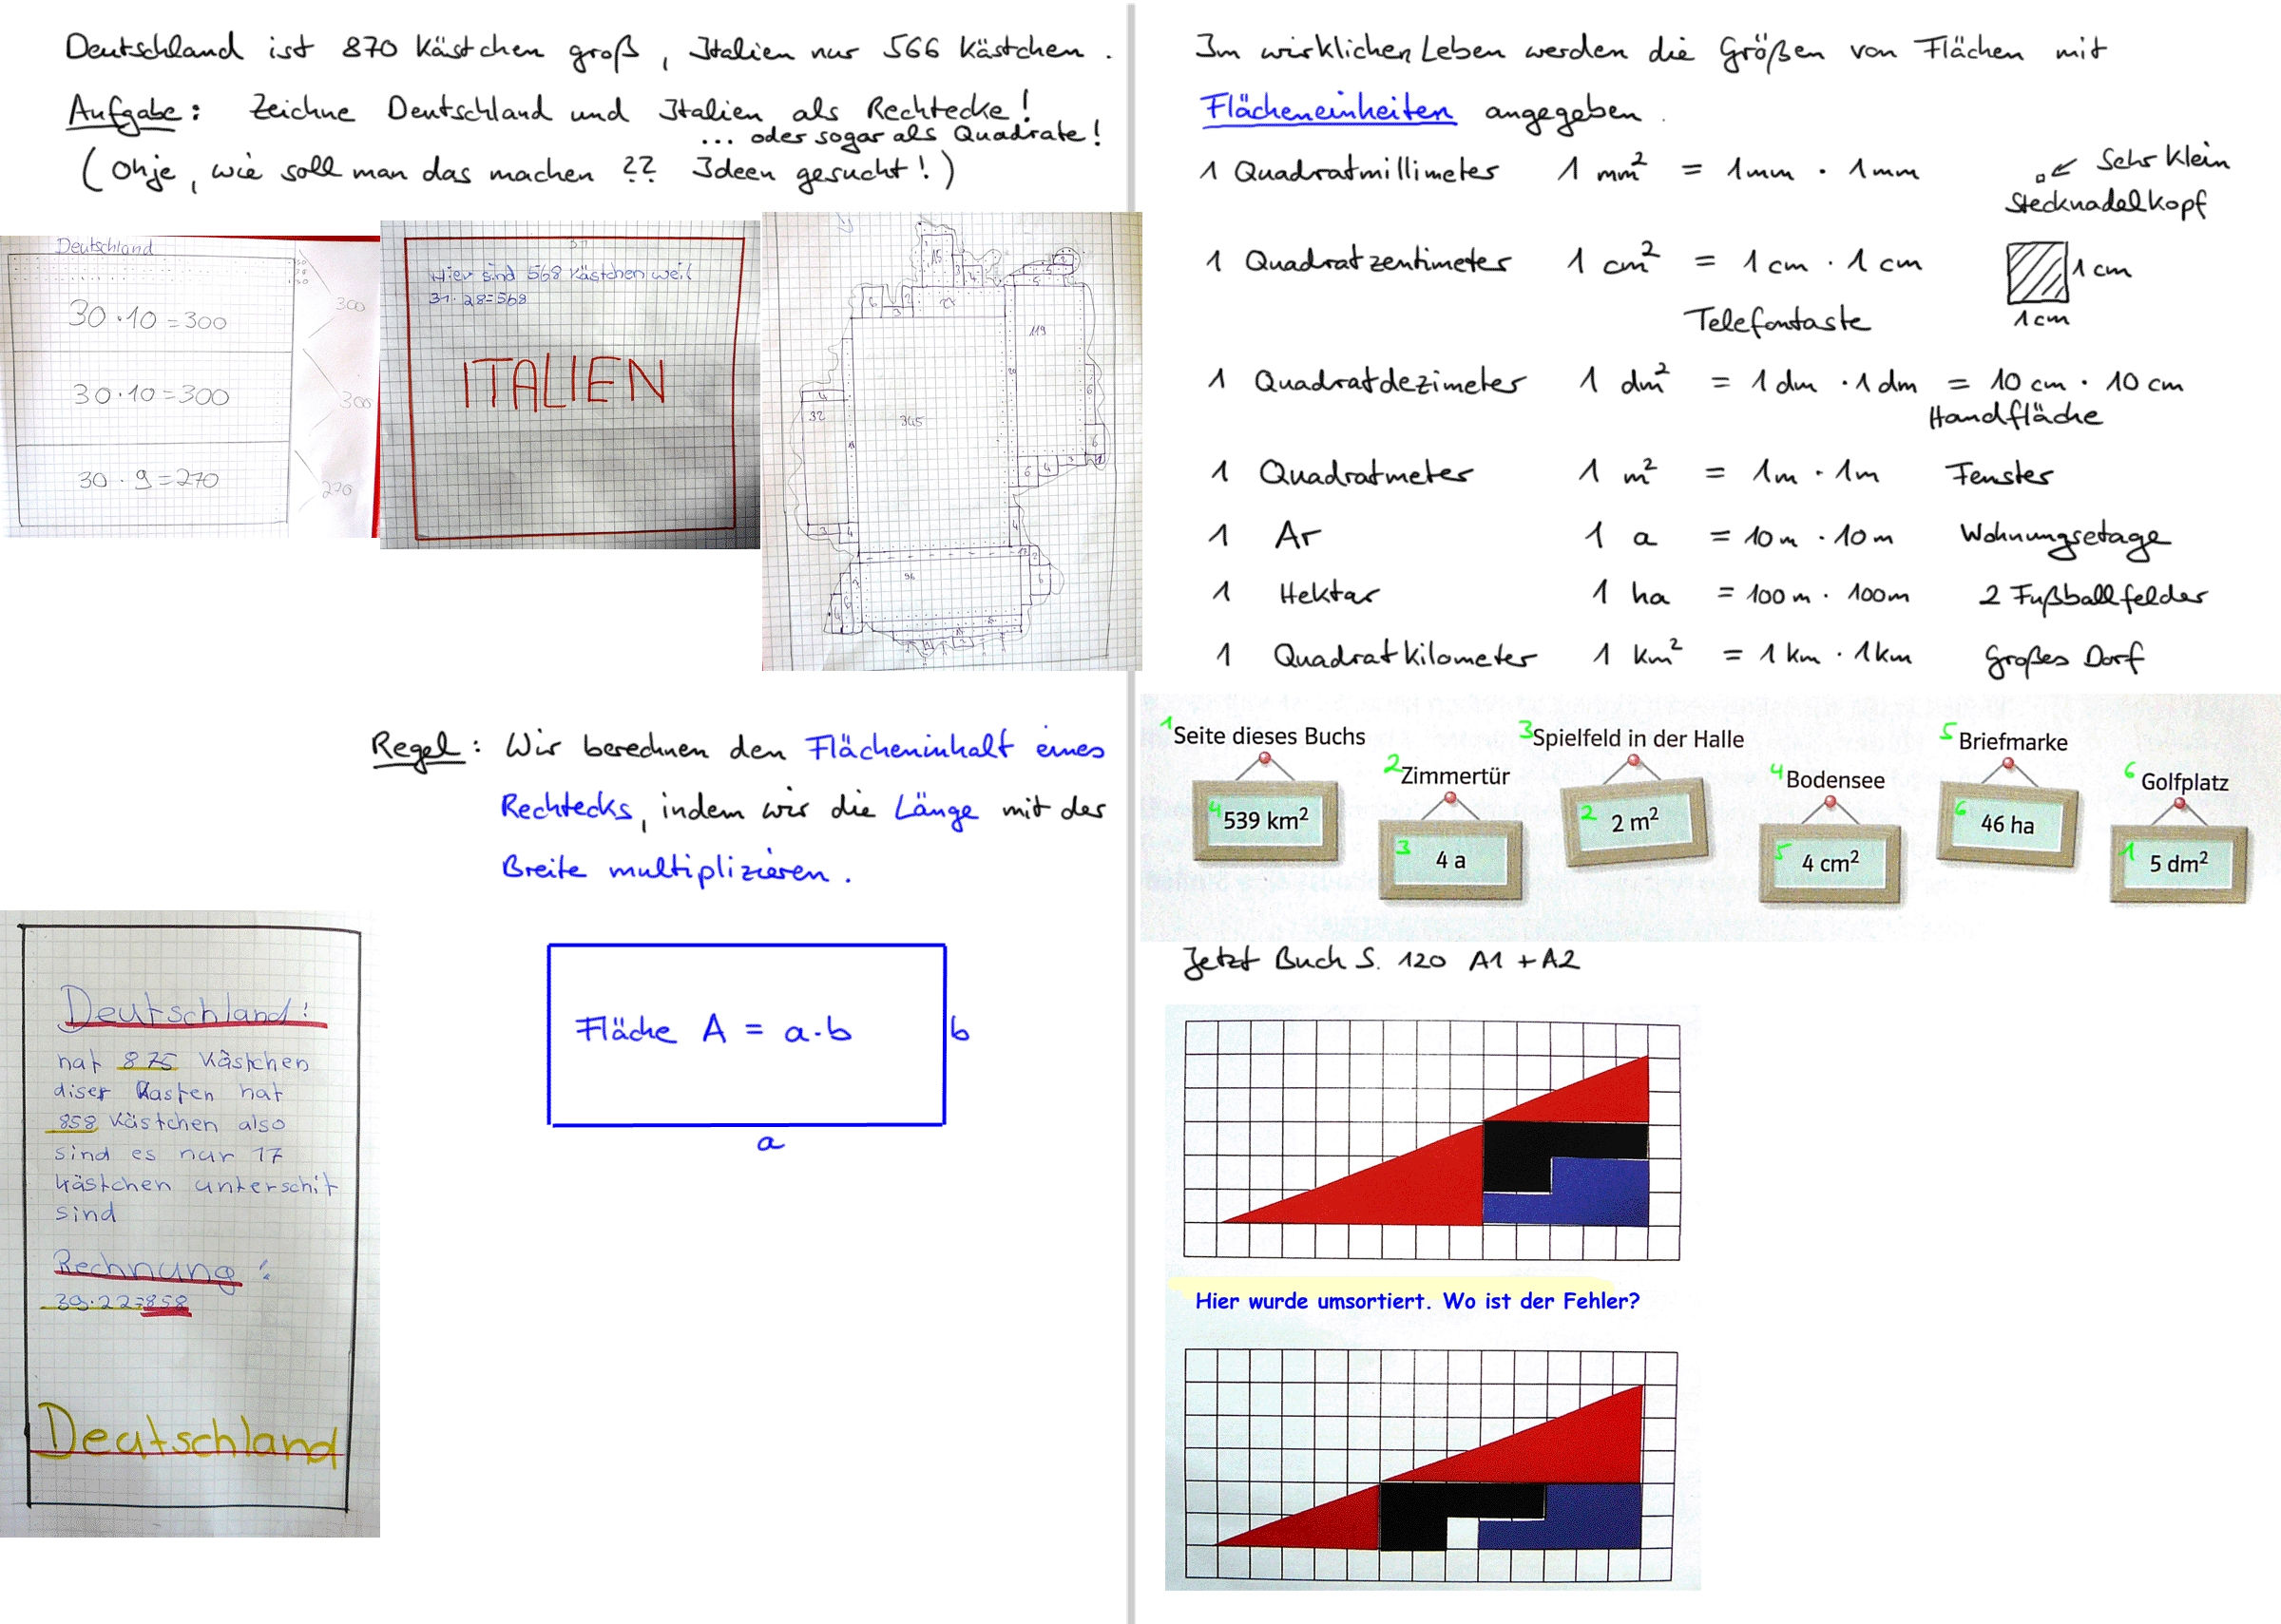 Deutschland ist 870 Kästchen groß, Italien nur 566 Kästchen.
Aufgabe: Zeichne Deutschland und Italien als Rechtecke!
... oder sogar als Quadrate!
(Ohje, wie soll man das machen ?? Ideen gesucht!)
Deutschland
30·10=300
300
30·10=300
300
30·9=270
270
31
Hier sind 568 Kästchen weil
31·28=568
ITALIEN
15
3
4
5
6
3
21
119
20
4
32
345
6
6
6
4
3
3
4
4
13
2
96
6
Regel: Wir berechnen den Flächeninhalt eines
Rechtecks, indem wir die Länge mit der
Breite multiplizieren.
Fläche A = a·b
b
a
Deutschland!
hat 875 Kästchen
diser Kasten hat
858 Kästchen also
sind es nur 17
kästchen unterschit
sind
Rechnung!
39·22=858
Deutschland
Im wirklichen Leben werden die Größen von Flächen mit
Flächeneinheiten angegeben.
1 Quadratmillimeter 1 mm² = 1mm · 1mm
Sehr klein
Stecknadelkopf
1 Quadratzentimeter 1 cm² = 1 cm · 1 cm
1 cm
1 cm
Telefontaste
1 Quadratdezimeter 1 dm² = 1 dm · 1 dm = 10 cm · 10 cm
Handfläche
1 Quadratmeter 1 m² = 1m · 1m Fenster
1 Ar 1 a = 10m · 10m Wohnungsetage
1 Hektar 1 ha = 100m · 100m 2 Fußballfelder
1 Quadratkilometer 1 km² = 1 km · 1km Großes Dorf
1 Seite dieses Buchs
4 539 km²
2 Zimmertür
3 4 a
3 Spielfeld in der Halle
2 2 m²
4 Bodensee
5 4 cm²
5 Briefmarke
6 46 ha
6 Golfplatz
1 5 dm²
Jetzt Buch S. 120 A1 + A2
Hier wurde umsortiert. Wo ist der Fehler?